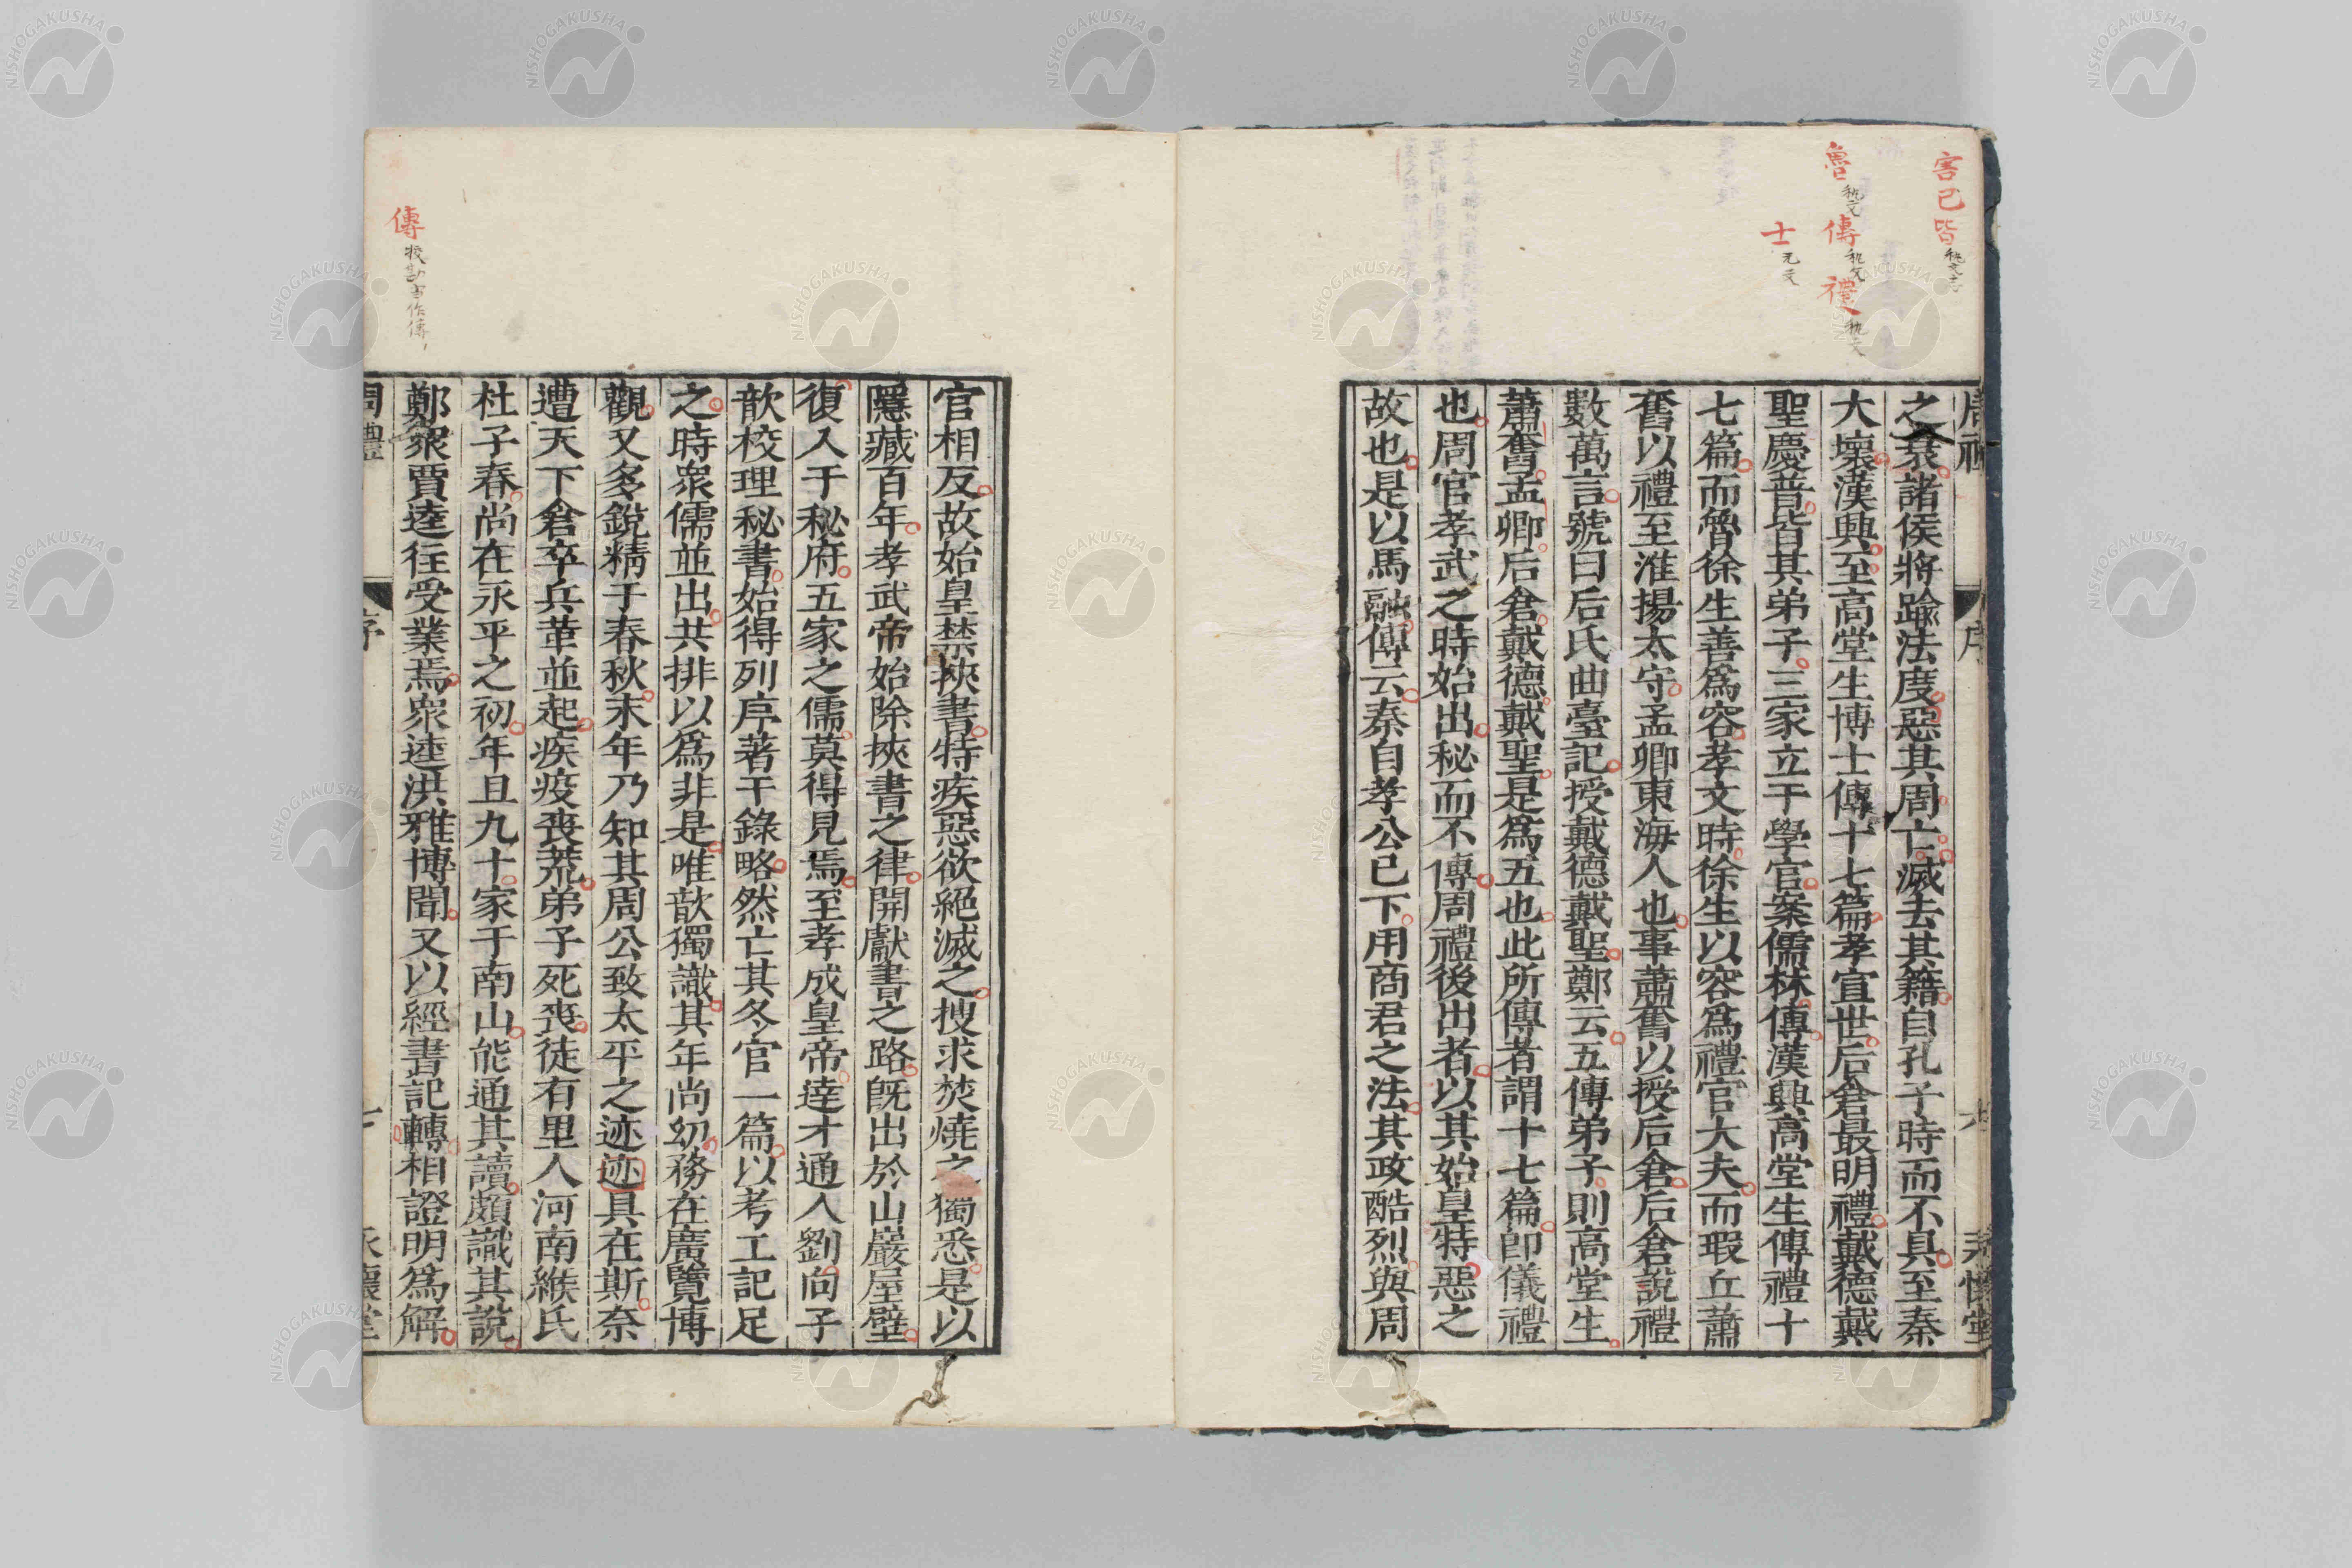 害己皆
魯
傳
禮
士
周禮
序
六
永懷堂
之衰諸侯將踰法度惡其周亡滅去其籍自孔子時而不具至秦
大壞漢興至高堂生博士傳十七篇孝宣世后倉最明禮戴德戴
聖慶普皆其弟子三家立于學官案儒林傳漢興高堂生傳禮十
七篇而魯徐生善爲容孝文時徐生以容爲禮官大夫而瑕丘蕭
奮以禮至淮揚太守孟卿東海人也事蕭奮以授后倉后倉說禮
數萬言號曰后氏曲臺記授戴德戴聖鄭云五傳弟子則高堂生
蕭奮孟卿后倉戴德戴聖是爲五也此所傳者謂十七篇卽儀禮
也周官孝武之時始出秘而不傳周禮後出者以其始皇特惡之
故也是以馬融傳云秦自孝公已下用商君之法其政酷烈與周
官相反故始皇禁挾書特疾惡欲絕滅之搜求焚燒之獨悉是以
隱藏百年孝武帝始除挾書之律開獻書之路旣出於山巖屋壁
復入于秘府五家之儒莫得見焉至孝成皇帝達才通人劉向子
歆校理秘書始得列序著于錄略然亡其冬官一篇以考工記足
之時衆儒並出共排以爲非是唯歆獨識其年尚幼務在廣覽博
觀又多銳精于春秋末年乃知其周公致太平之迹迹具在斯奈
遭天下倉卒兵革並起疾疫喪荒弟子死喪徒有里人河南緱氏
杜子春尚在永平之初年且九十家于南山能通其讀頗識其說
鄭衆賈逵往受業焉衆逵洪雅博聞又以經書記轉相證明爲解
傳
校勘當作傳
周禮
序
七
永懷堂
NISHOGAKUSHA